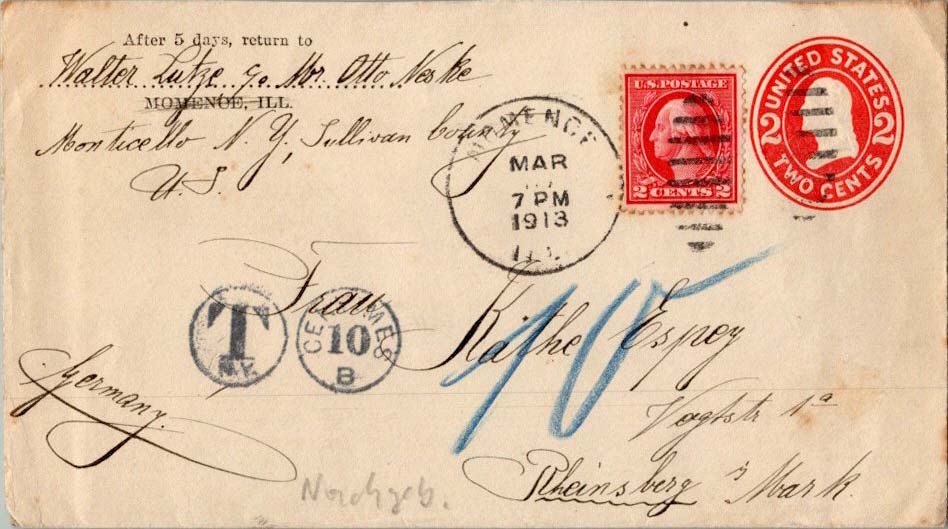 After 5 days, return to
Walter Lutze c/o Mr. Otto Neske
MOMENCE, ILL.
Monticello N. Y, Sullivan County
U.S.
MOMENCE
MAR
7 PM
1913
ILL.
U.S. POSTAGE
2 CENTS 2
UNITED STATES
2 2
TWO CENTS
Frau
Käthe Espey
T
N.Y.
CENTIMES
10
B
10
Germany.
Vogtstr 1a
Rheinsberg i/ Mark.
Nachgeb.